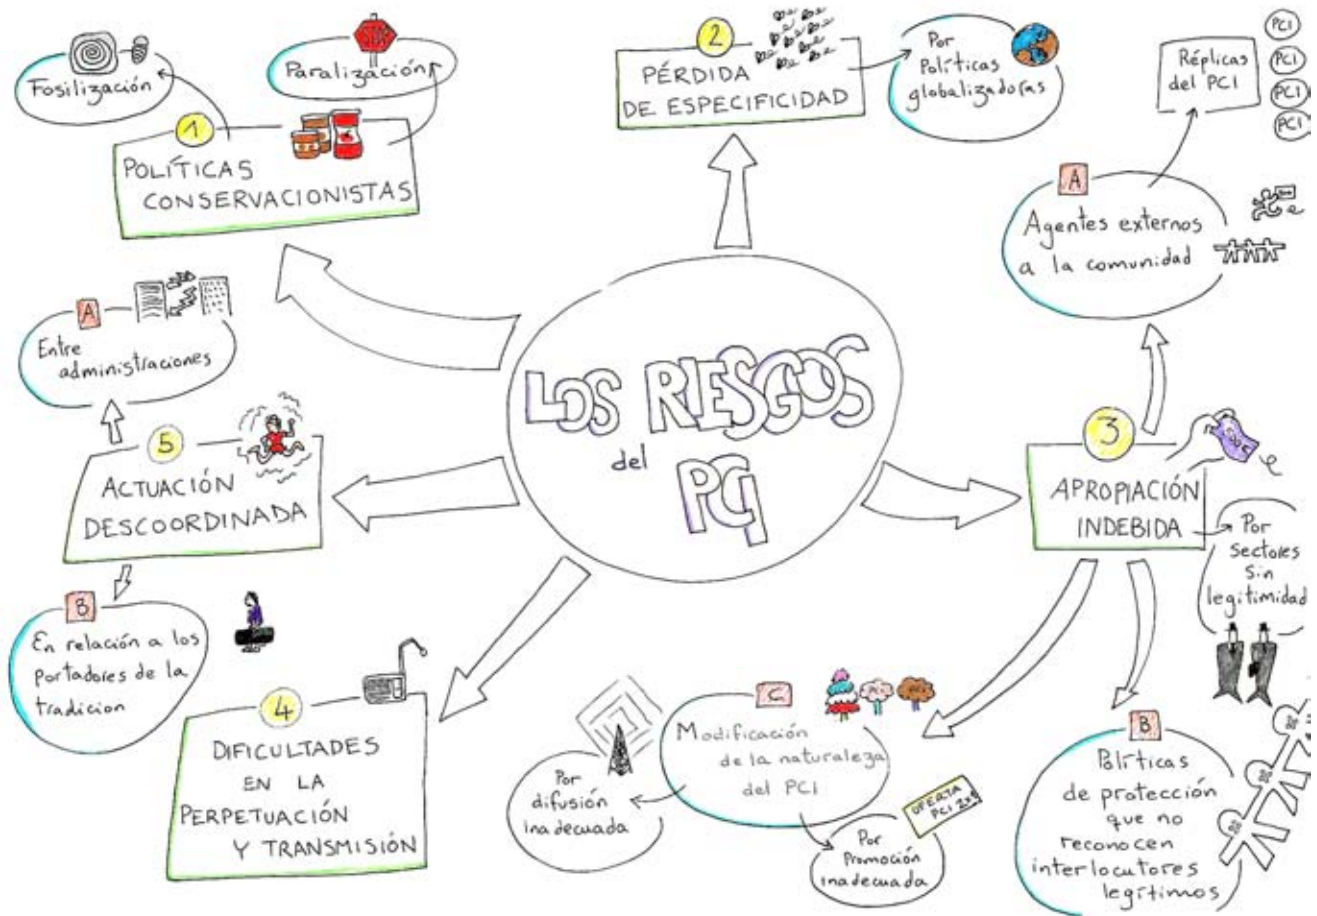 LOS RIESGOS
del
PCI
1
POLÍTICAS
CONSERVACIONISTAS
Fosilización
STOP
Paralización
2
PÉRDIDA
DE ESPECIFICIDAD
Por
Políticas
globalizadoras
3
APROPIACIÓN
INDEBIDA
Por
sectores
sin
legitimidad
A
Agentes externos
a la comunidad
Réplicas
del PCI
PCI
PCI
PCI
PCI
B
Políticas
de protección
que no
reconocen
interlocutores
legítimos
C
Modificación
de la naturaleza
del PCI
Por
difusión
inadecuada
Por
Promoción
inadecuada
OFERTA
PCI 2x1
4
DIFICULTADES
EN LA
PERPETUACIÓN
Y TRANSMISIÓN
5
ACTUACIÓN
DESCOORDINADA
A
Entre
administraciones
B
En relación a los
portadores de la
tradicion